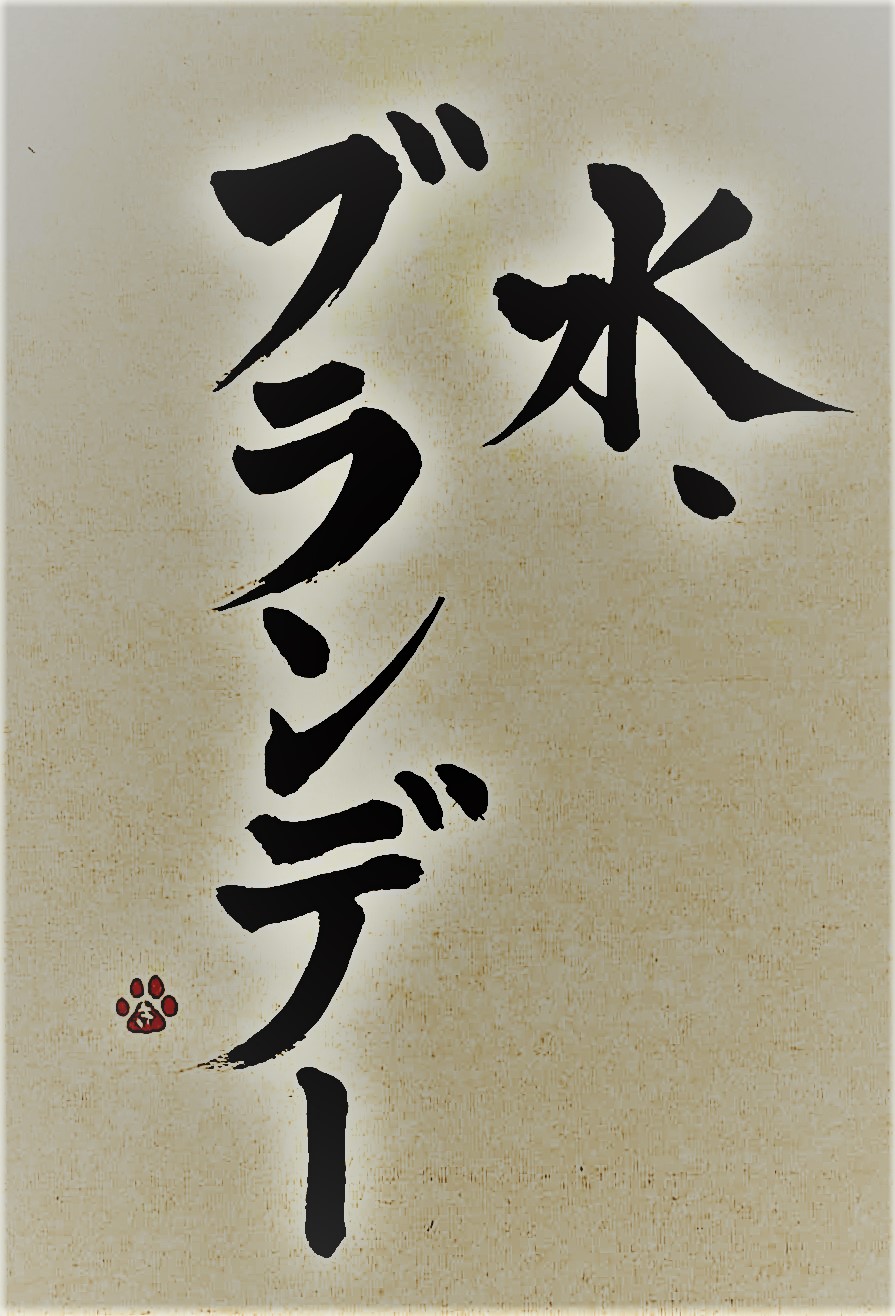 水、
ブランデー
き